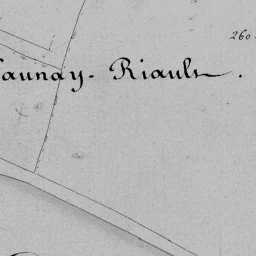 260
aunay - Riault.